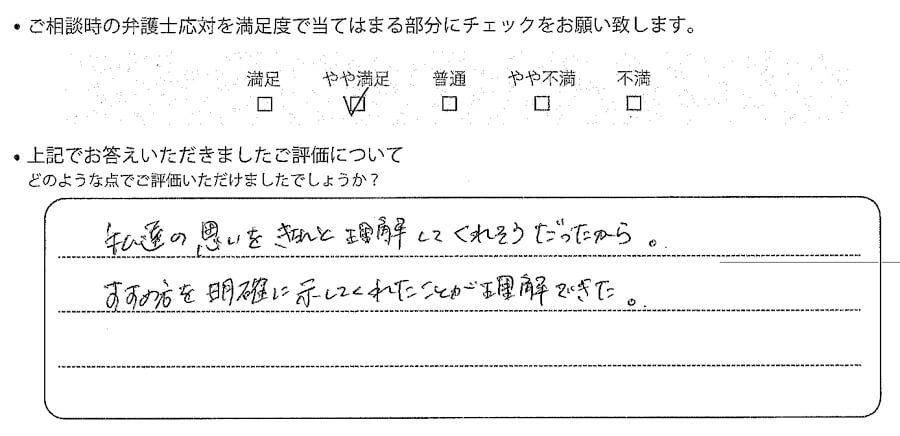 • ご相談時の弁護士応対を満足度で当てはまる部分にチェックをお願い致します。
満足 やや満足 普通 やや不満 不満
□ ☑ □ □ □
• 上記でお答えいただきましたご評価について
どのような点でご評価いただけましたでしょうか？
私達の思いをきちんと理解してくれそうだったから。
すすめ方を明確に示してくれたことが理解できた。